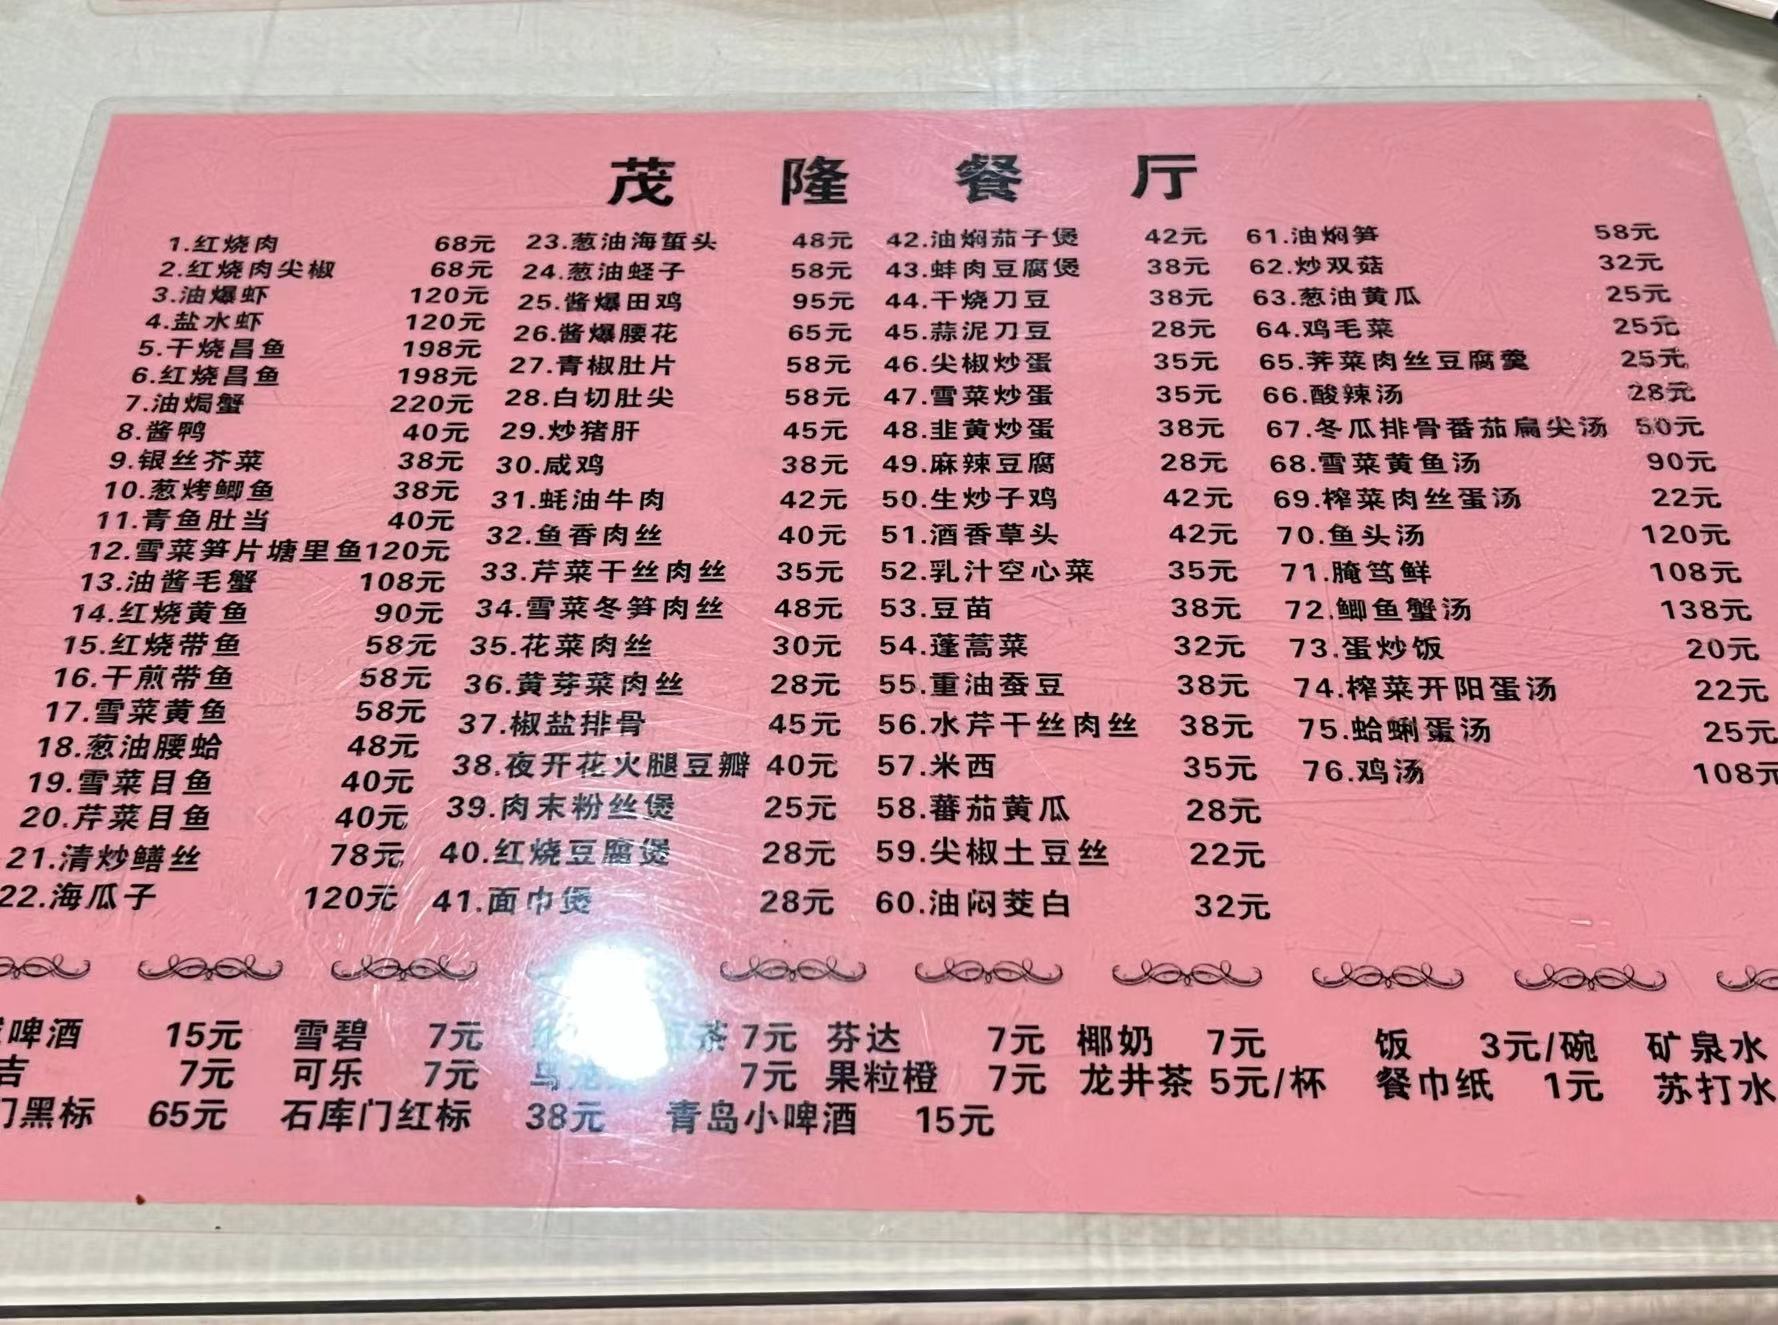 茂隆餐厅
1.红烧肉 68元
2.红烧肉尖椒 68元
3.油爆虾 120元
4.盐水虾 120元
5.干烧昌鱼 198元
6.红烧昌鱼 198元
7.油焗蟹 220元
8.酱鸭 40元
9.银丝芥菜 38元
10.葱烤鲫鱼 38元
11.青鱼肚当 40元
12.雪菜笋片塘里鱼120元
13.油酱毛蟹 108元
14.红烧黄鱼 90元
15.红烧带鱼 58元
16.干煎带鱼 58元
17.雪菜黄鱼 58元
18.葱油腰蛤 48元
19.雪菜目鱼 40元
20.芹菜目鱼 40元
21.清炒鳝丝 78元
22.海瓜子 120元
23.葱油海蜇头 48元
24.葱油蛏子 58元
25.酱爆田鸡 95元
26.酱爆腰花 65元
27.青椒肚片 58元
28.白切肚尖 58元
29.炒猪肝 45元
30.咸鸡 38元
31.蚝油牛肉 42元
32.鱼香肉丝 40元
33.芹菜干丝肉丝 35元
34.雪菜冬笋肉丝 48元
35.花菜肉丝 30元
36.黄芽菜肉丝 28元
37.椒盐排骨 45元
38.夜开花火腿豆瓣 40元
39.肉末粉丝煲 25元
40.红烧豆腐煲 28元
41.面巾煲 28元
42.油焖茄子煲 42元
43.蚌肉豆腐煲 38元
44.干烧刀豆 38元
45.蒜泥刀豆 28元
46.尖椒炒蛋 35元
47.雪菜炒蛋 35元
48.韭黄炒蛋 38元
49.麻辣豆腐 28元
50.生炒子鸡 42元
51.酒香草头 42元
52.乳汁空心菜 35元
53.豆苗 38元
54.蓬蒿菜 32元
55.重油蚕豆 38元
56.水芹干丝肉丝 38元
57.米西 35元
58.蕃茄黄瓜 28元
59.尖椒土豆丝 22元
60.油闷茭白 32元
61.油焖笋 58元
62.炒双菇 32元
63.葱油黄瓜 25元
64.鸡毛菜 25元
65.荠菜肉丝豆腐羹 25元
66.酸辣汤 28元
67.冬瓜排骨番茄扁尖汤 50元
68.雪菜黄鱼汤 90元
69.榨菜肉丝蛋汤 22元
70.鱼头汤 120元
71.腌笃鲜 108元
72.鲫鱼蟹汤 138元
73.蛋炒饭 20元
74.榨菜开阳蛋汤 22元
75.蛤蜊蛋汤 25元
76.鸡汤 108元
啤酒 15元 雪碧 7元 茶 7元 芬达 7元 椰奶 7元 饭 3元/碗 矿泉水
吉 7元 可乐 7元 乌龙 7元 果粒橙 7元 龙井茶 5元/杯 餐巾纸 1元 苏打水
门黑标 65元 石库门红标 38元 青岛小啤酒 15元